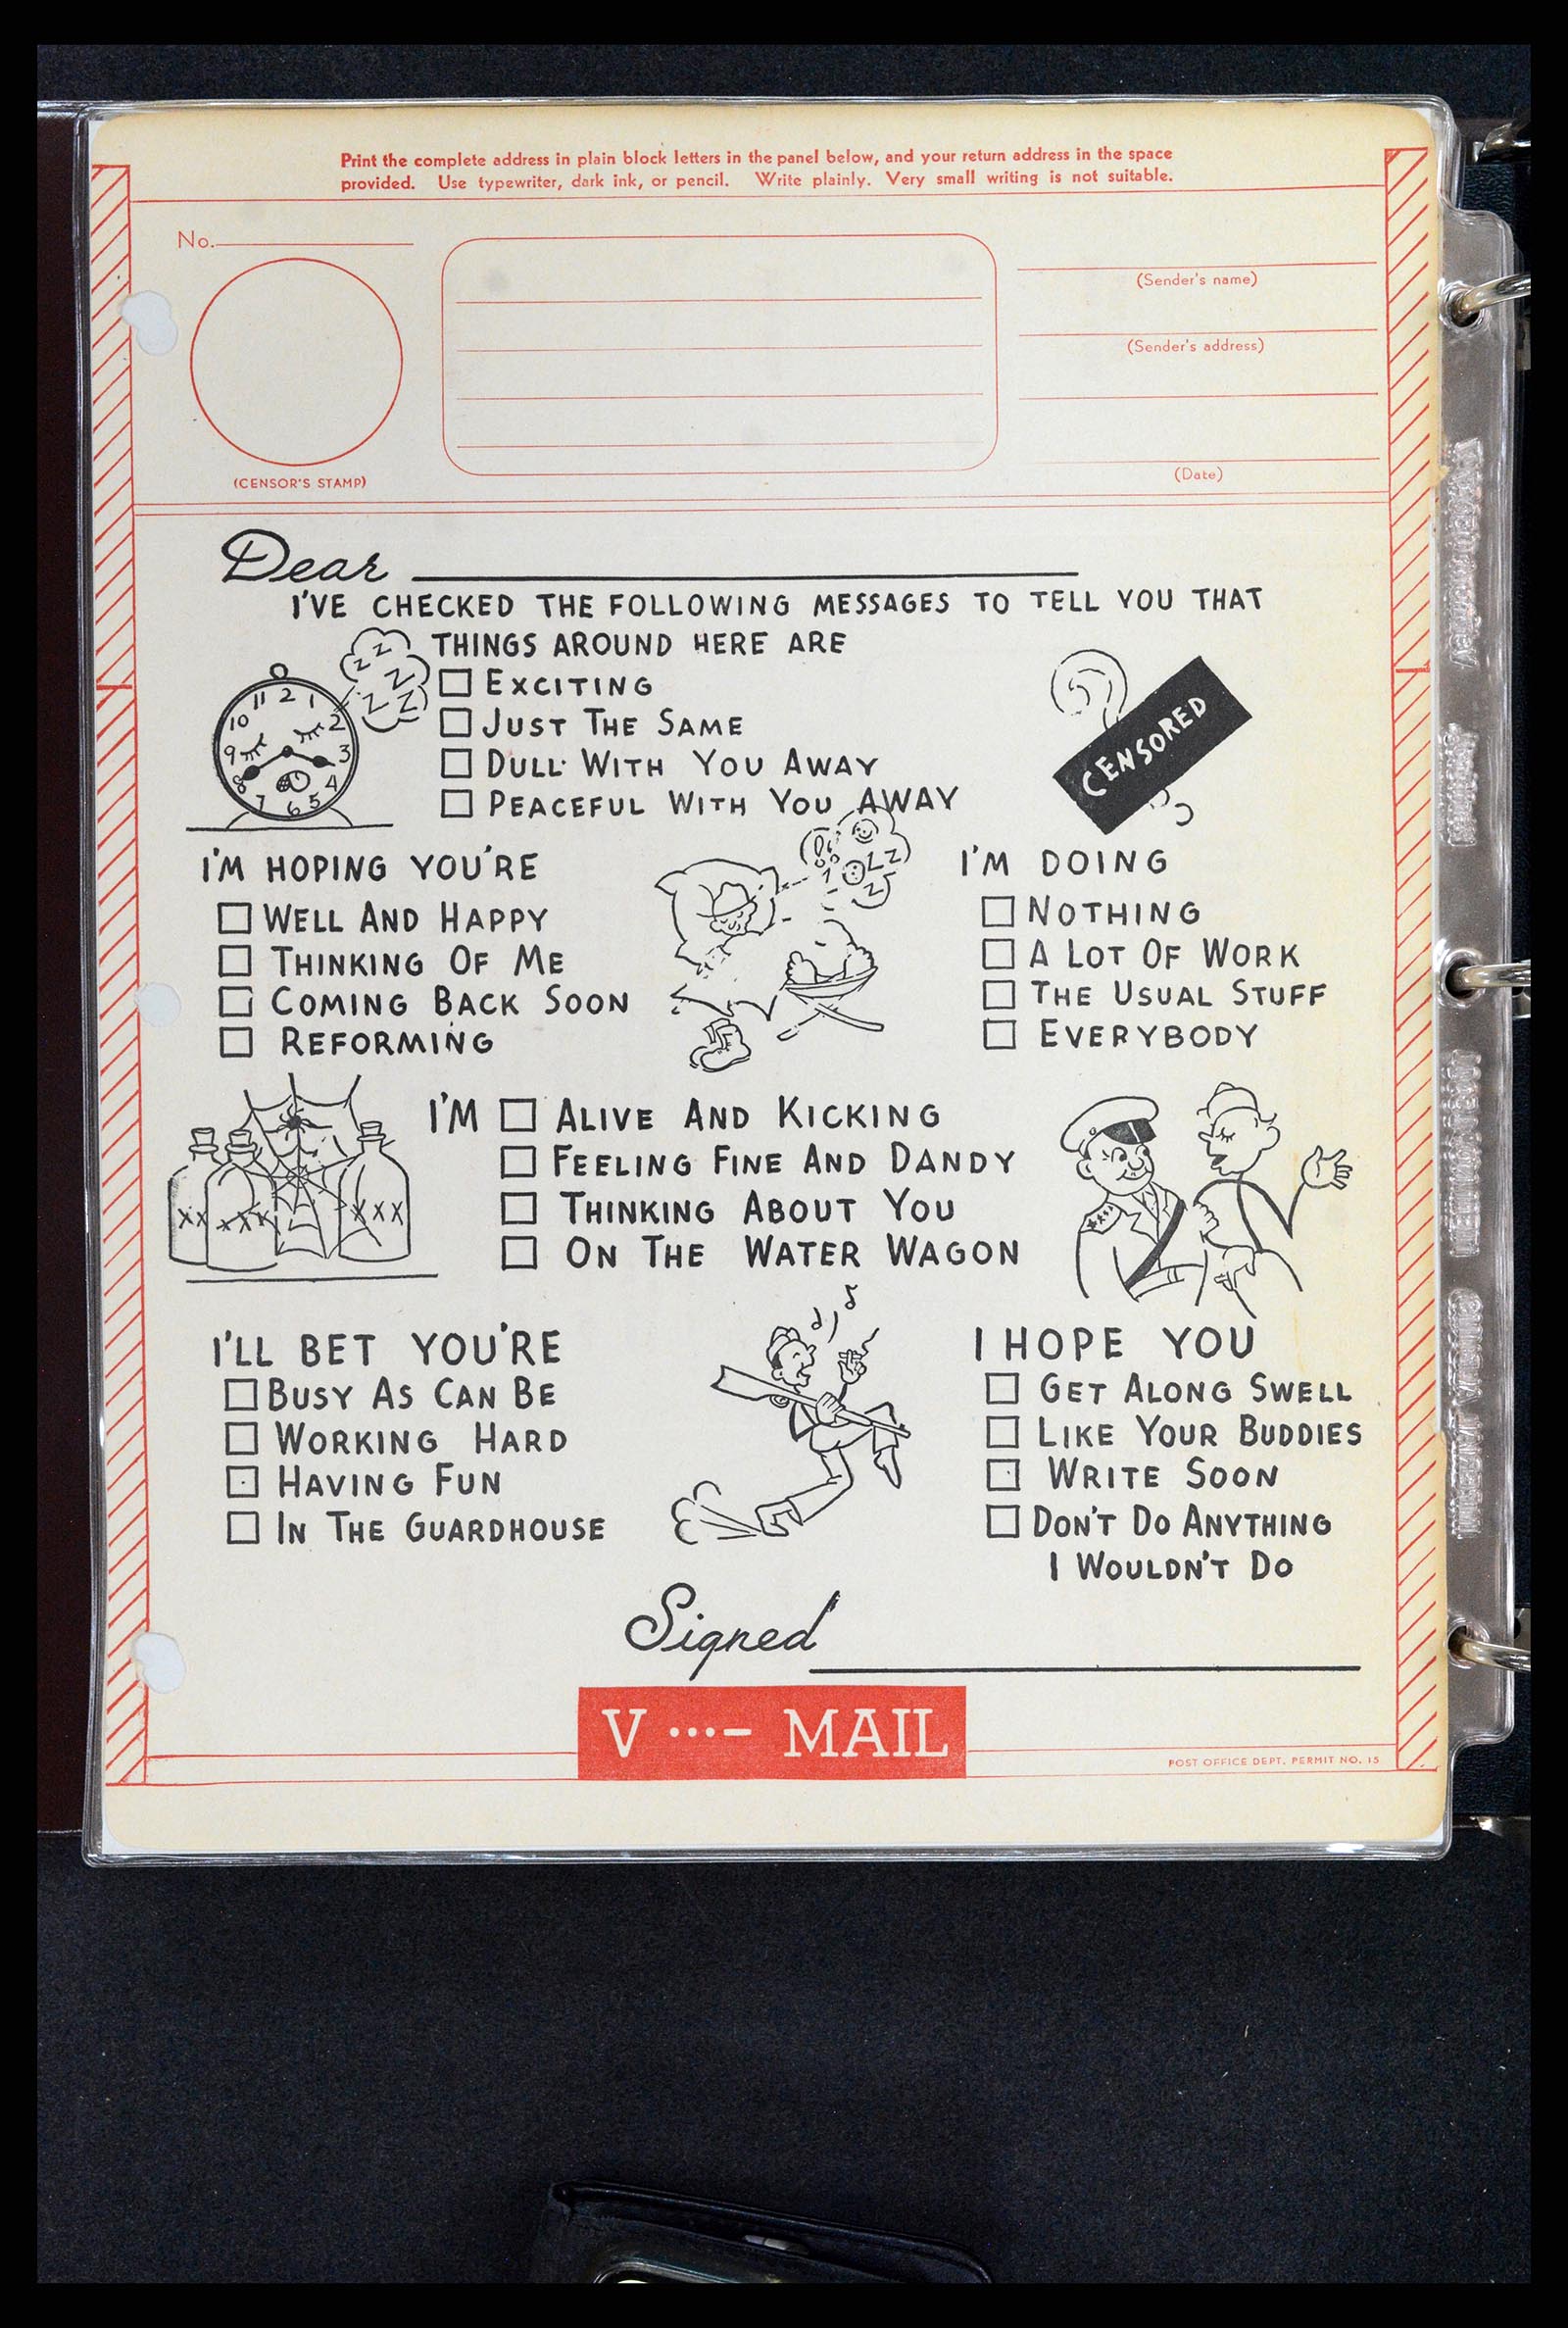 Print the complete address in plain block letters in the panel below, and your return address in the space
provided. Use typewriter, dark ink, or pencil. Write plainly. Very small writing is not suitable.
No.
(CENSOR'S STAMP)
(Sender's name)
(Sender's address)
(Date)
Dear
I'VE CHECKED THE FOLLOWING MESSAGES TO TELL YOU THAT
THINGS AROUND HERE ARE
EXCITING
JUST THE SAME
DULL WITH YOU AWAY
PEACEFUL WITH YOU AWAY
Z Z Z Z Z
11 12 1 2 3 4 5 6 7 8 9 10
CENSORED
I'M HOPING YOU'RE
WELL AND HAPPY
THINKING OF ME
COMING BACK SOON
REFORMING
Z Z Z
I'M DOING
NOTHING
A LOT OF WORK
THE USUAL STUFF
EVERYBODY
XX XXX XXX
I'M ALIVE AND KICKING
FEELING FINE AND DANDY
THINKING ABOUT YOU
ON THE WATER WAGON
I'LL BET YOU'RE
BUSY AS CAN BE
WORKING HARD
HAVING FUN
IN THE GUARDHOUSE
I HOPE YOU
GET ALONG SWELL
LIKE YOUR BUDDIES
WRITE SOON
DON'T DO ANYTHING
I WOULDN'T DO
Signed
V ...– MAIL
POST OFFICE DEPT. PERMIT NO. 15